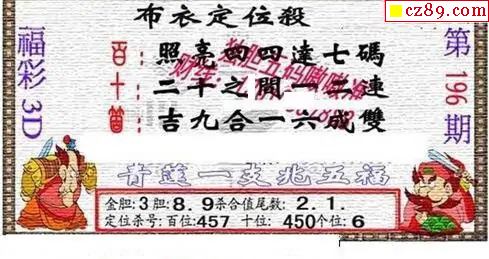 cz89.com
布衣定位殺
福彩3D
第196期
百:照亮四四達七碼
十:二千之間一二連
吉九合一六成雙
青蓮一支兆五福
金胆:3胆:8.9杀合值尾数:2.1.
定位杀号:百位:457 十位:450个位:6